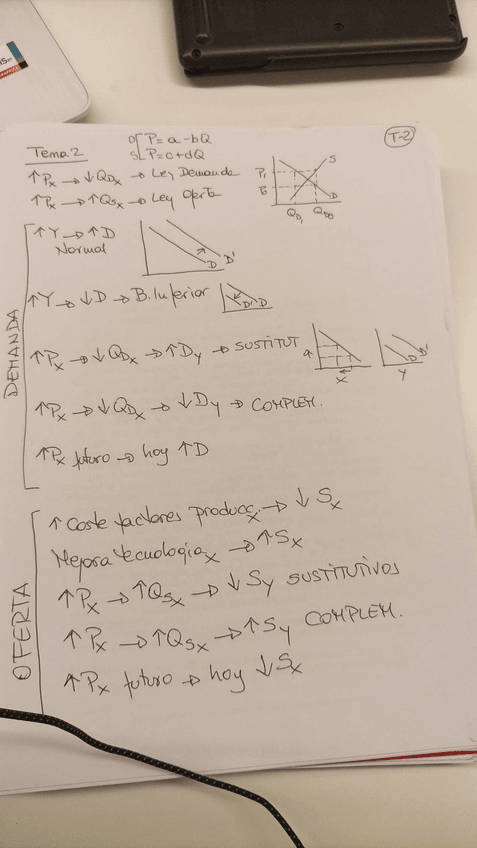 T-2
Tema 2
D[ P=a-bQ
S[ P=c+dQ
↑Px → ↓QDx → Ley Demanda
↑Px → ↑QSx → Ley Oferta
P1 S
P0 D
QD1 QD0
DEMANDA
↑Y → ↑D
Normal
D D'
↑Y → ↓D → B. Inferior
D' D
↑Px → ↓QDx → ↑Dy → SUSTITUT
X
D D'
Y
↑Px → ↓QDx → ↓Dy → COMPLEM.
↑Px futuro → hoy ↑D
OFERTA
↑ Coste factores producc.x → ↓ Sx
Mejora tecnologíax → ↑Sx
↑Px → ↑QSx → ↓Sy SUSTITUTIVOS
↑Px → ↑QSx → ↑Sy COMPLEM.
↑Px futuro → hoy ↓Sx